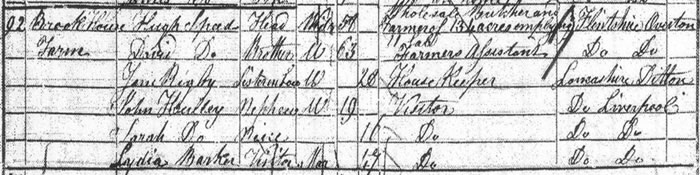 92 Brook House Hugh Speed Head Wid 59 Wholesale Butcher and Farmer of 134 acres employing Flintshire Overton
Farm David Do Brother U 63 Farmers Assistant Do Do
Jane Rigby U 28 House Keeper Lancashire Ditton
John Nephew U 19 Visitor Do Liverpool
Sarah Do Niece 16 Do Do Do
Lydia Barker Visitor Mar 17 Do Do Do